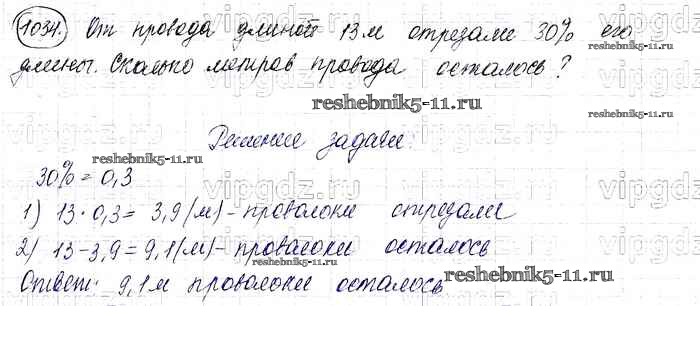 1034. От провода длиной 13 м отрезали 30% его
длины. Сколько метров провода осталось?
reshebnik5-11.ru
reshebnik5-11.ru
Решение задачи:
reshebnik5-11.ru
30% = 0,3
1) 13 · 0,3 = 3,9 (м) - проволоки отрезали
2) 13 - 3,9 = 9,1 (м) - проволоки осталось
Ответ: 9,1 м проволоки осталось
reshebnik5-11.ru